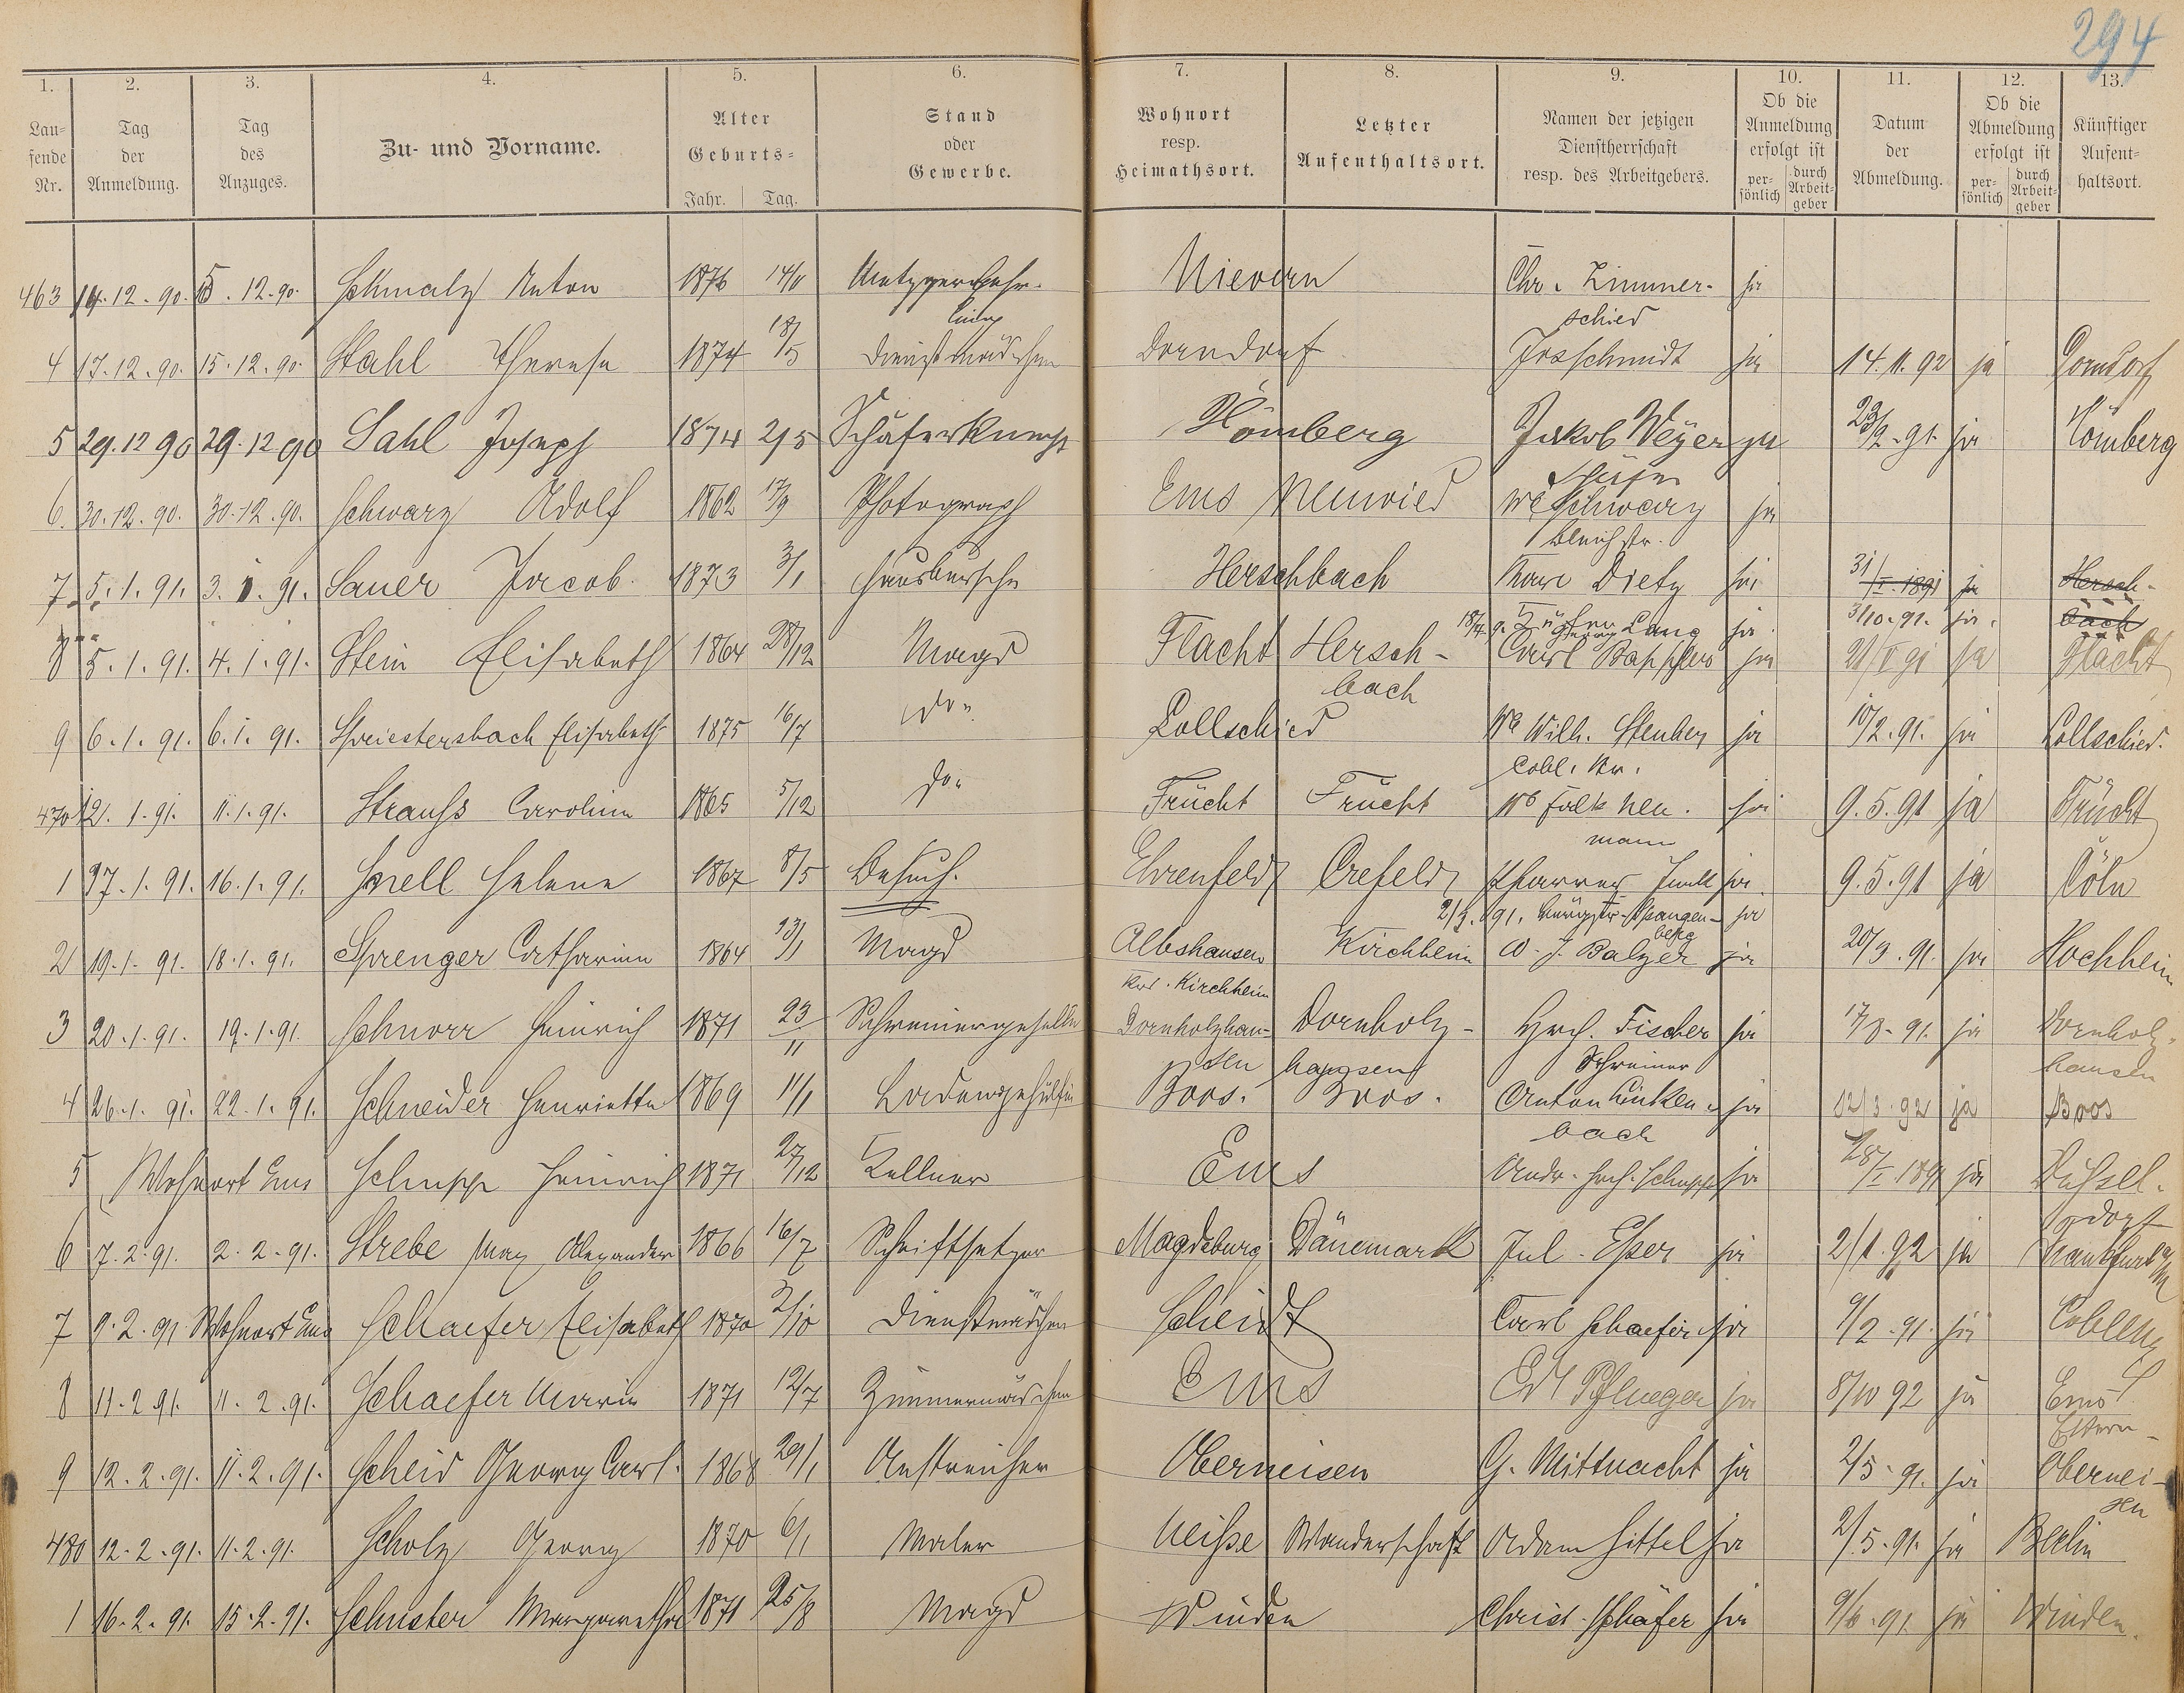 294
1. 2. 3. 4. 5. 6. 7. 8. 9. 10. 11. 12. 13.
Laufende Nr. Tag der Anmeldung. Tag des Anzuges. Zu- und Vorname. Alter Geburts- Jahr. Tag. Stand oder Gewerbe. Wohnort resp. Heimathsort. Letzter Aufenthaltsort. Namen der jetzigen Dienstherrschaft resp. des Arbeitgebers. Ob die Anmeldung erfolgt ist persönlich durch Arbeitgeber Datum der Abmeldung. Ob die Abmeldung erfolgt ist persönlich durch Arbeitgeber Künftiger Aufenthaltsort.
463 14.12.90. 15.12.90. Schmalz Anton 1876 14/11 Metzgerlehrling Nievern Chr. Zimmerschied ja
4 17.12.90. 15.12.90. Stahl Therese 1874 18/5 Dienstmädchen Dorndorf Jos Schmidt ja 14.11.92 ja Dorndorf
5 29.12 90 29.12 90 Sahl Joseph 1874 2/5 Schäferknecht Hömberg Jakob Weyer Schäfer ja 23/2.91. ja Hömberg
6. 30.12.90. 30.12.90. Schwarz Adolf 1862 17/9 Photograph Ems Neuwied We Schwarz Bleichstr. ja
7. 5.1.91. 3.1.91. Sauer Jacob. 1873 3/1 Hausbursche Herschbach Karl Dietz ja 31/I 1891 ja Herschbach
18/4 9. Georg Lang ja. 3/10.91. ja.
8 5.1.91. 4.1.91. Stein Elisabeth 1864 28/12 Magd Flacht Herschbach Carl Bapplus ja 21/V 91 ja Flacht
9 6.1.91. 6.1.91. Spriestersbach Elisabeth 1875 16/7 do. Lollschied We Wilh. Steuber Cobl. Str. ja 10/2.91. ja Lollschied.
470 12.1.91. 11.1.91. Strauss Caroline 1865 5/12 do. Frücht Frücht We Falk Neumann ja 9.5.91 ja Frücht
1 17.1.91. 16.1.91. Snell Helene 1867 8/5 Besuch. Ehrenfeld Crefeld Pfarrer Funk ja 9.5.91 ja Cöln
2/3.91. Spangenberg ja
2 19.1.91. 18.1.91. Sprenger Catharine 1864 13/1 Magd Albshausen Krs. Kirchheim Kirchheim W. J. Balzer ja 20/3.91. ja Hochheim
3 20.1.91. 19.1.91. Schnorr Heinrich 1871 23/11 Schreinergeselle Dornholzhausen Dornholzhausen Hrch. Fischer Schreiner ja 17/3.91. ja Dornholzhausen
4 26.1.91. 22.1.91. Schneider Henriette 1869 11/1 Ladengehülfin Boos. Boos. Anton Linkenbach ja 12/3.92 ja Boos
5 Wohnort Ems Schupp Heinrich 1871 27/12 Kellner Ems Andr. Hrch. Schupp ja 28/I 1891 ja Düssel-dorf
6 7.2.91. 2.2.91. Strebe Max Alexander 1866 16/7 Schriftsetzer Magdeburg Dänemark Jul. Esser ja 2/1.92 ja Frankfurt a/M
7 9.2.91 Wohnort Ems Schaefer Elisabeth 1870 3/10 Dienstmädchen Scheidt Carl Schaefer ja 9/2.91. ja Coblenz
8 11.2.91. 11.2.91. Schaefer Marie 1871 12/7 Zimmermädchen Ems Ed Pflueger ja 8/10 92 ja Ems Eltern
9 12.2.91. 11.2.91. Scheid Georg Carl. 1868 29/1 Anstreicher Oberneisen G. Mittnacht ja 2/5.91. ja Oberneisen
480 12.2.91. 11.2.91. Scholz Georg 1870 6/1 Maler Neisse Wanderschaft Adam Hittel ja 2/5.91. ja Berlin
1 16.2.91. 15.2.91. Schuster Margarethe 1871 25/8 Magd Winden Christ. Schäfer ja 9/6.91 ja Winden.